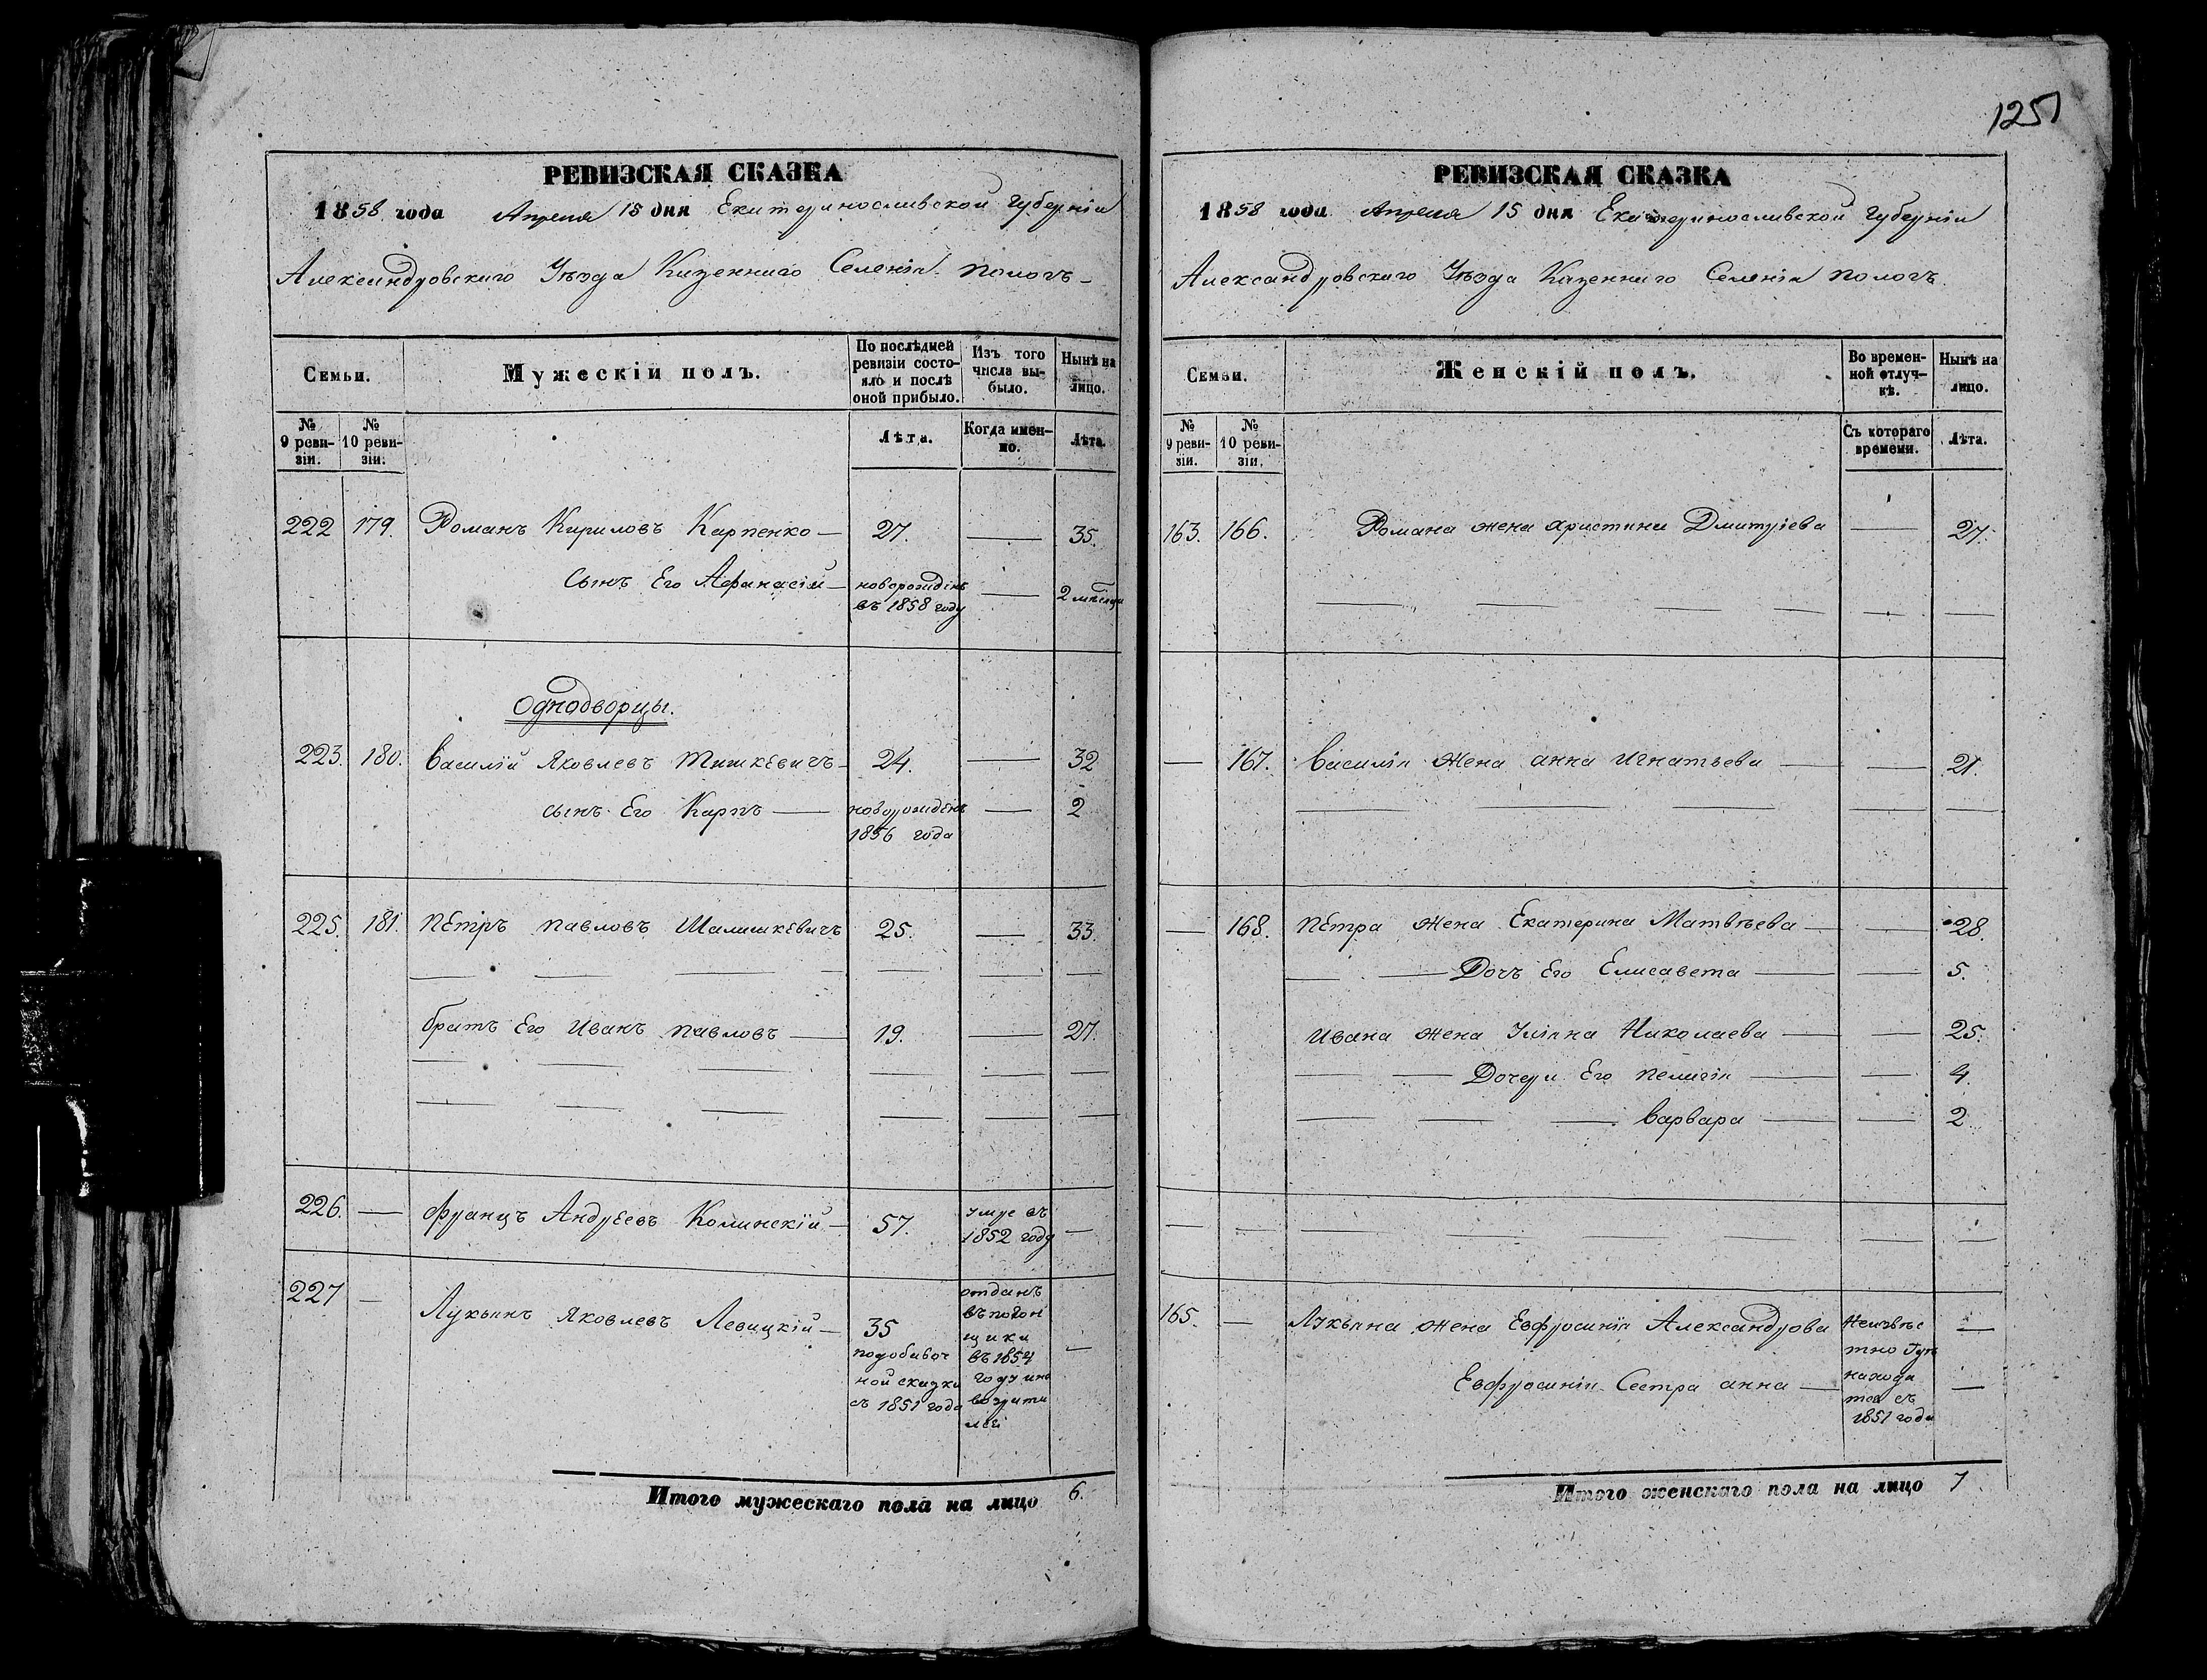 1251
РЕВИЗСКАЯ СКАЗКА
1858 года Апреля 15 дня Екатеринославской Губерніи
Александровскаго Уѣзда Казеннаго Селенія Пологъ
Семьи.
Мужескій полъ.
По послѣдней ревизіи состояло и послѣ оной прибыло.
Изъ того числа выбыло.
Нынѣ на лицо.
№ 9 ревизіи.
№ 10 ревизіи.
Лѣта.
Когда именно.
Лѣта.
222 179. Романъ Кириловъ Карпенко — 27. — 35.
Сынъ Его Афанасій — новорождѣнъ въ 1858 году —
Однодворцы.
223. 180. Василій Яковлевъ Тишкевичъ — 24. — 32
сынъ Его Карпъ — новорождѣнъ 1856 года — 2
225. 181. Пётръ Павловъ 25. — 33.
братъ Его Иванъ Павловъ — 19. — 27.
226. — Францъ Андреевъ Колинскій — 57. умре въ 1852 году —
227 — Лукьянъ Яковлевъ Левицкій — 35
подобавоч
ной сказки
съ 1851 года
отданъ
въ погон
щики
въ 1854
году ине
возврати
лся
—
Итого мужескаго пола на лицо 6.
РЕВИЗСКАЯ СКАЗКА
1858 года Апреля 15 дня Екатеринославской Губерніи
Александровскаго Уѣзда Казеннаго Селенія Пологъ.
Семьи.
Женскій полъ.
Во временной отлучкѣ.
Нынѣ на лицо.
№ 9 ревизіи.
№ 10 ревизіи.
Съ котораго времени.
Лѣта.
163. 166. Романа жена Христина Дмитріева — 27.
— 167. Василія Жена Анна Игнатьева — 21.
— 168. Пётра Жена Екатерина Матвѣева — 28.
Дочъ Его Елисавета — 5.
Ивана жена Николаева — 25.
Дочери Его Пелагія — 4.
Варвара — 2
165. — Лукьяна жена Евфросинія Александрова
Евфросиніи Сестра Анна —
Неизвѣс
тно Гдѣ
находя
тся съ
1851 года
—
—
Итого женскаго пола на лицо 7